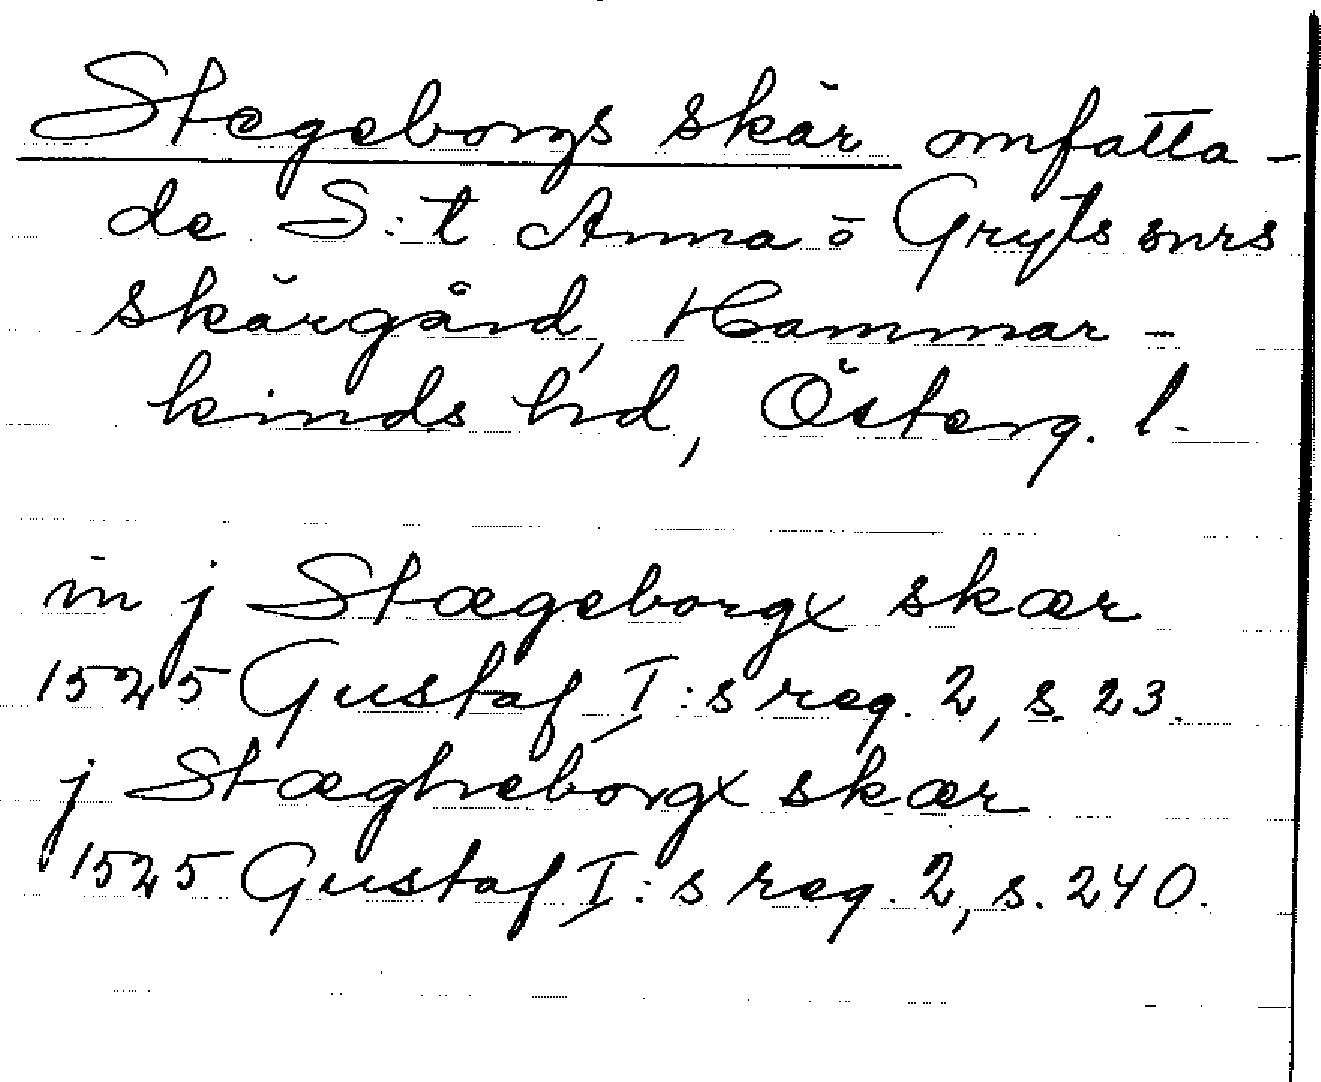 Stegeborgs skär omfatta-
de S:t Anna o Gryts snrs
skärgård, Hammar-
kinds hd, Österg. l.
in j Stægeborgx skær
1525 Gustaf I:s reg. 2, s. 23.
j Stægheborgx skær
1525 Gustaf I:s reg. 2, s. 240.